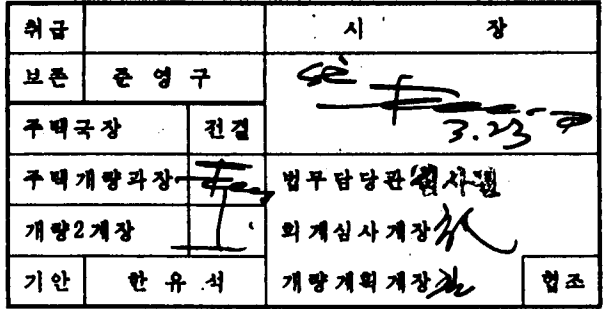 취급 시 장
보존 준 영 구
주택국장 전결 3.23
주택개량과장 법무담당관
개량2계장 회계심사계장
기안 한 유 석 개량계획계장 협조